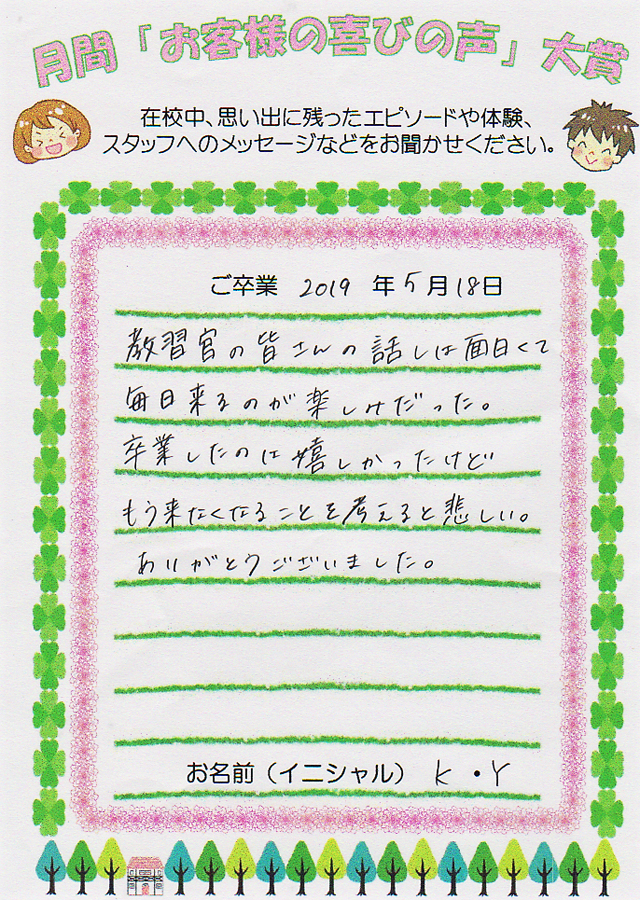 月間「お客様の喜びの声」大賞
在校中、思い出に残ったエピソードや体験、
スタッフへのメッセージなどをお聞かせください。
ご卒業 2019 年5月18日
教習官の皆さんの話しは面白くて
毎日来るのが楽しみだった。
卒業したのは嬉しかったけど
もう来なくなることを考えると悲しい。
ありがとうございました。
お名前（イニシャル） K・Y